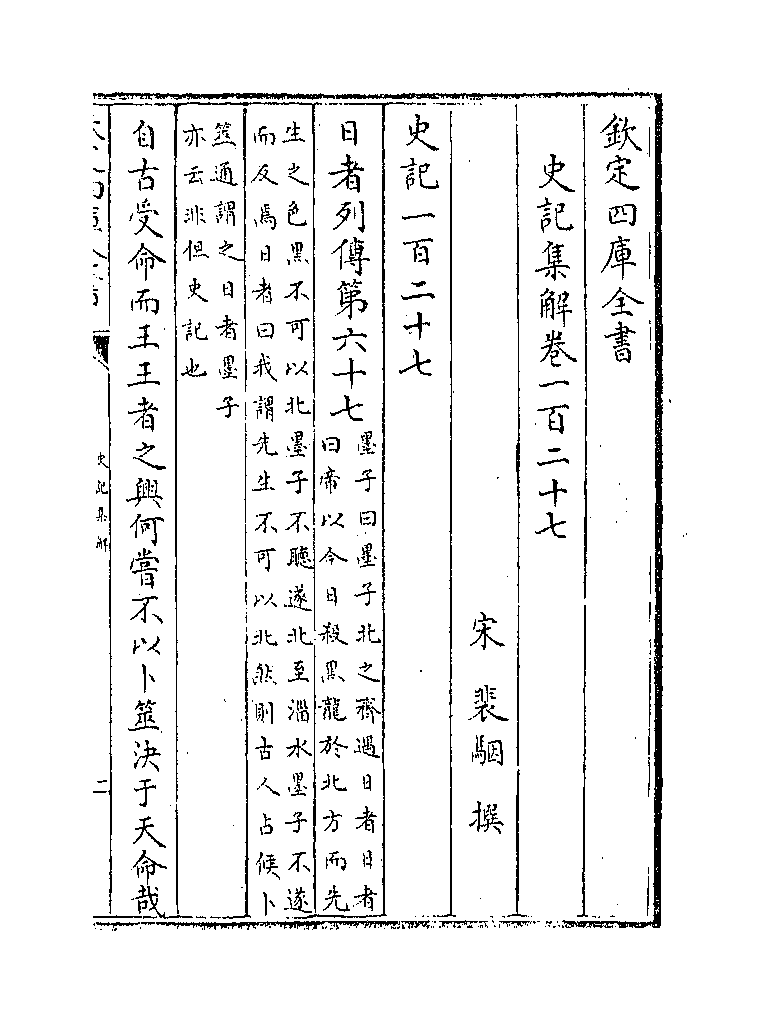 欽定四庫全書
史記集解卷一百二十七
宋 裴駰 撰
史記一百二十七
日者列傳第六十七
墨子曰墨子北之齊遇日者日者
曰帝以今日殺黒龍於北方而先
生之色黒不可以北墨子不聽遂北至淄水墨子不遂
而反焉日者曰我謂先生不可以北然則古人占候卜
筮通謂之日者墨子
亦云非但史記也
自古受命而王王者之興何嘗不以卜筮決于天命哉
史記集解
二